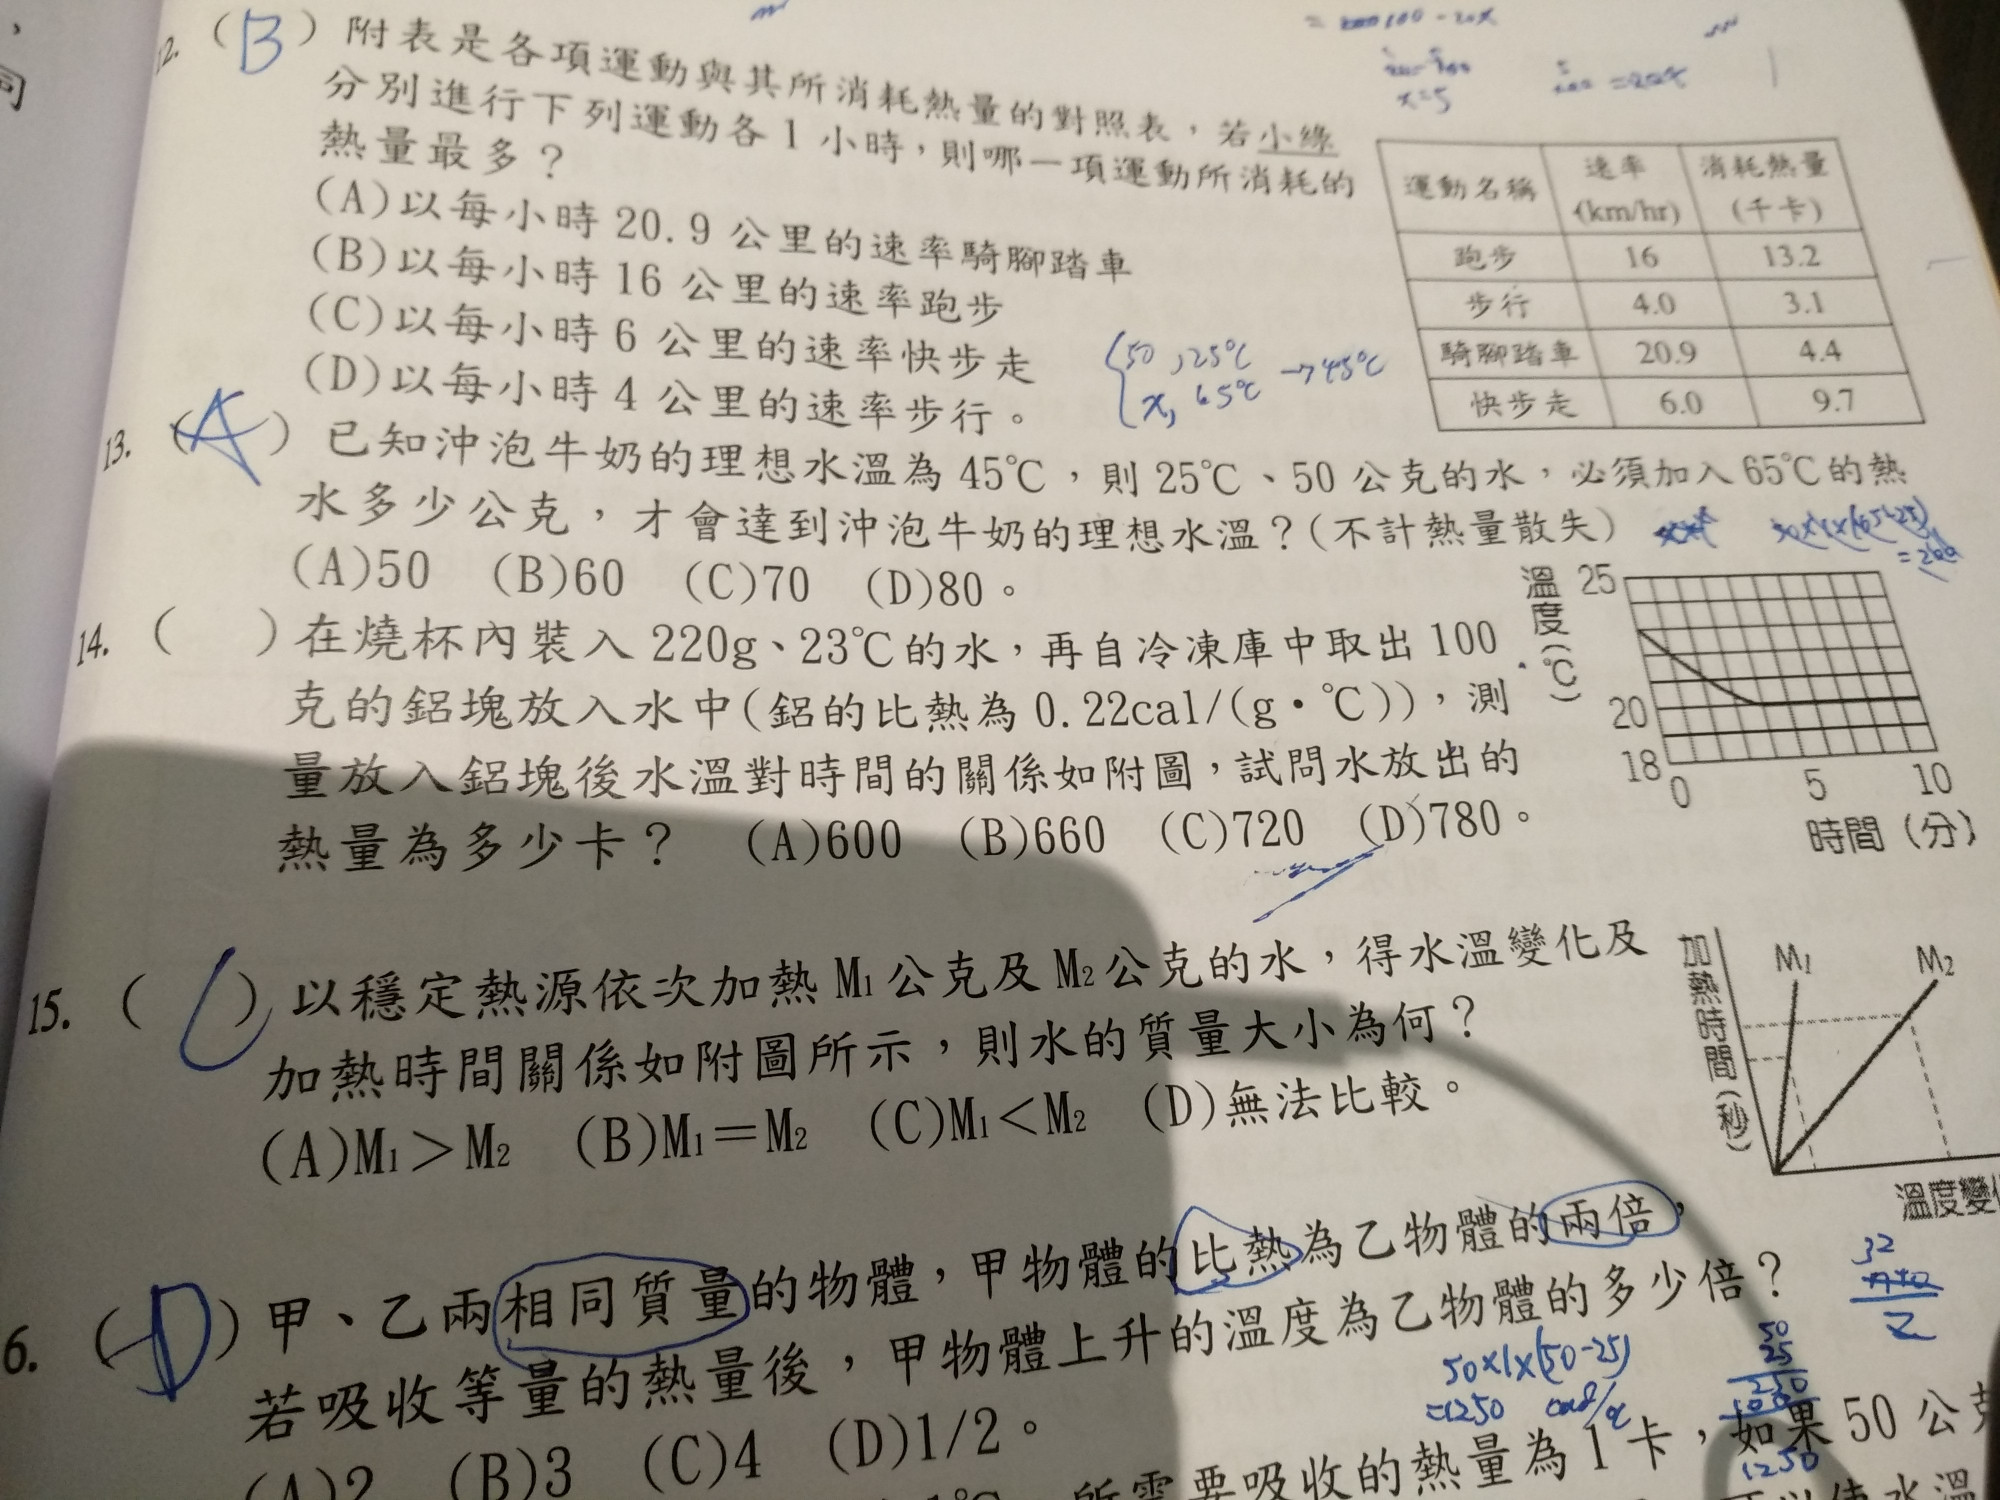 12. (B) 附表是各項運動與其所消耗熱量的對照表，若小綠
分別進行下列運動各1小時，則哪一項運動所消耗的
熱量最多？
(A)以每小時20.9公里的速率騎腳踏車
(B)以每小時16公里的速率跑步
(C)以每小時6公里的速率快步走
(D)以每小時4公里的速率步行。
運動名稱 速率(km/hr) 消耗熱量(千卡)
跑步 16 13.2
步行 4.0 3.1
騎腳踏車 20.9 4.4
快步走 6.0 9.7
x=5
50, 25℃
x, 65℃ →45℃
13. (A) 已知沖泡牛奶的理想水溫為45℃，則25℃、50公克的水，必須加入65℃的熱
水多少公克，才會達到沖泡牛奶的理想水溫？(不計熱量散失)
(A)50 (B)60 (C)70 (D)80。
14. ( ) 在燒杯內裝入220g、23℃的水，再自冷凍庫中取出100
克的鋁塊放入水中(鋁的比熱為0.22cal/(g·℃))，測
量放入鋁塊後水溫對時間的關係如附圖，試問水放出的
熱量為多少卡？ (A)600 (B)660 (C)720 (D)780。
溫度(℃)
25
20
18
0 5 10
時間(分)
15. (C) 以穩定熱源依次加熱M₁公克及M₂公克的水，得水溫變化及
加熱時間關係如附圖所示，則水的質量大小為何？
(A)M₁＞M₂ (B)M₁＝M₂ (C)M₁＜M₂ (D)無法比較。
加熱時間(秒)
M₁ M₂
溫度變
6. (D) 甲、乙兩相同質量的物體，甲物體的比熱為乙物體的兩倍，
若吸收等量的熱量後，甲物體上升的溫度為乙物體的多少倍？
(A)2 (B)3 (C)4 (D)1/2。
50×1×(50-25)
=1250
50
25
250
1250
所需要吸收的熱量為1卡，如果50公克